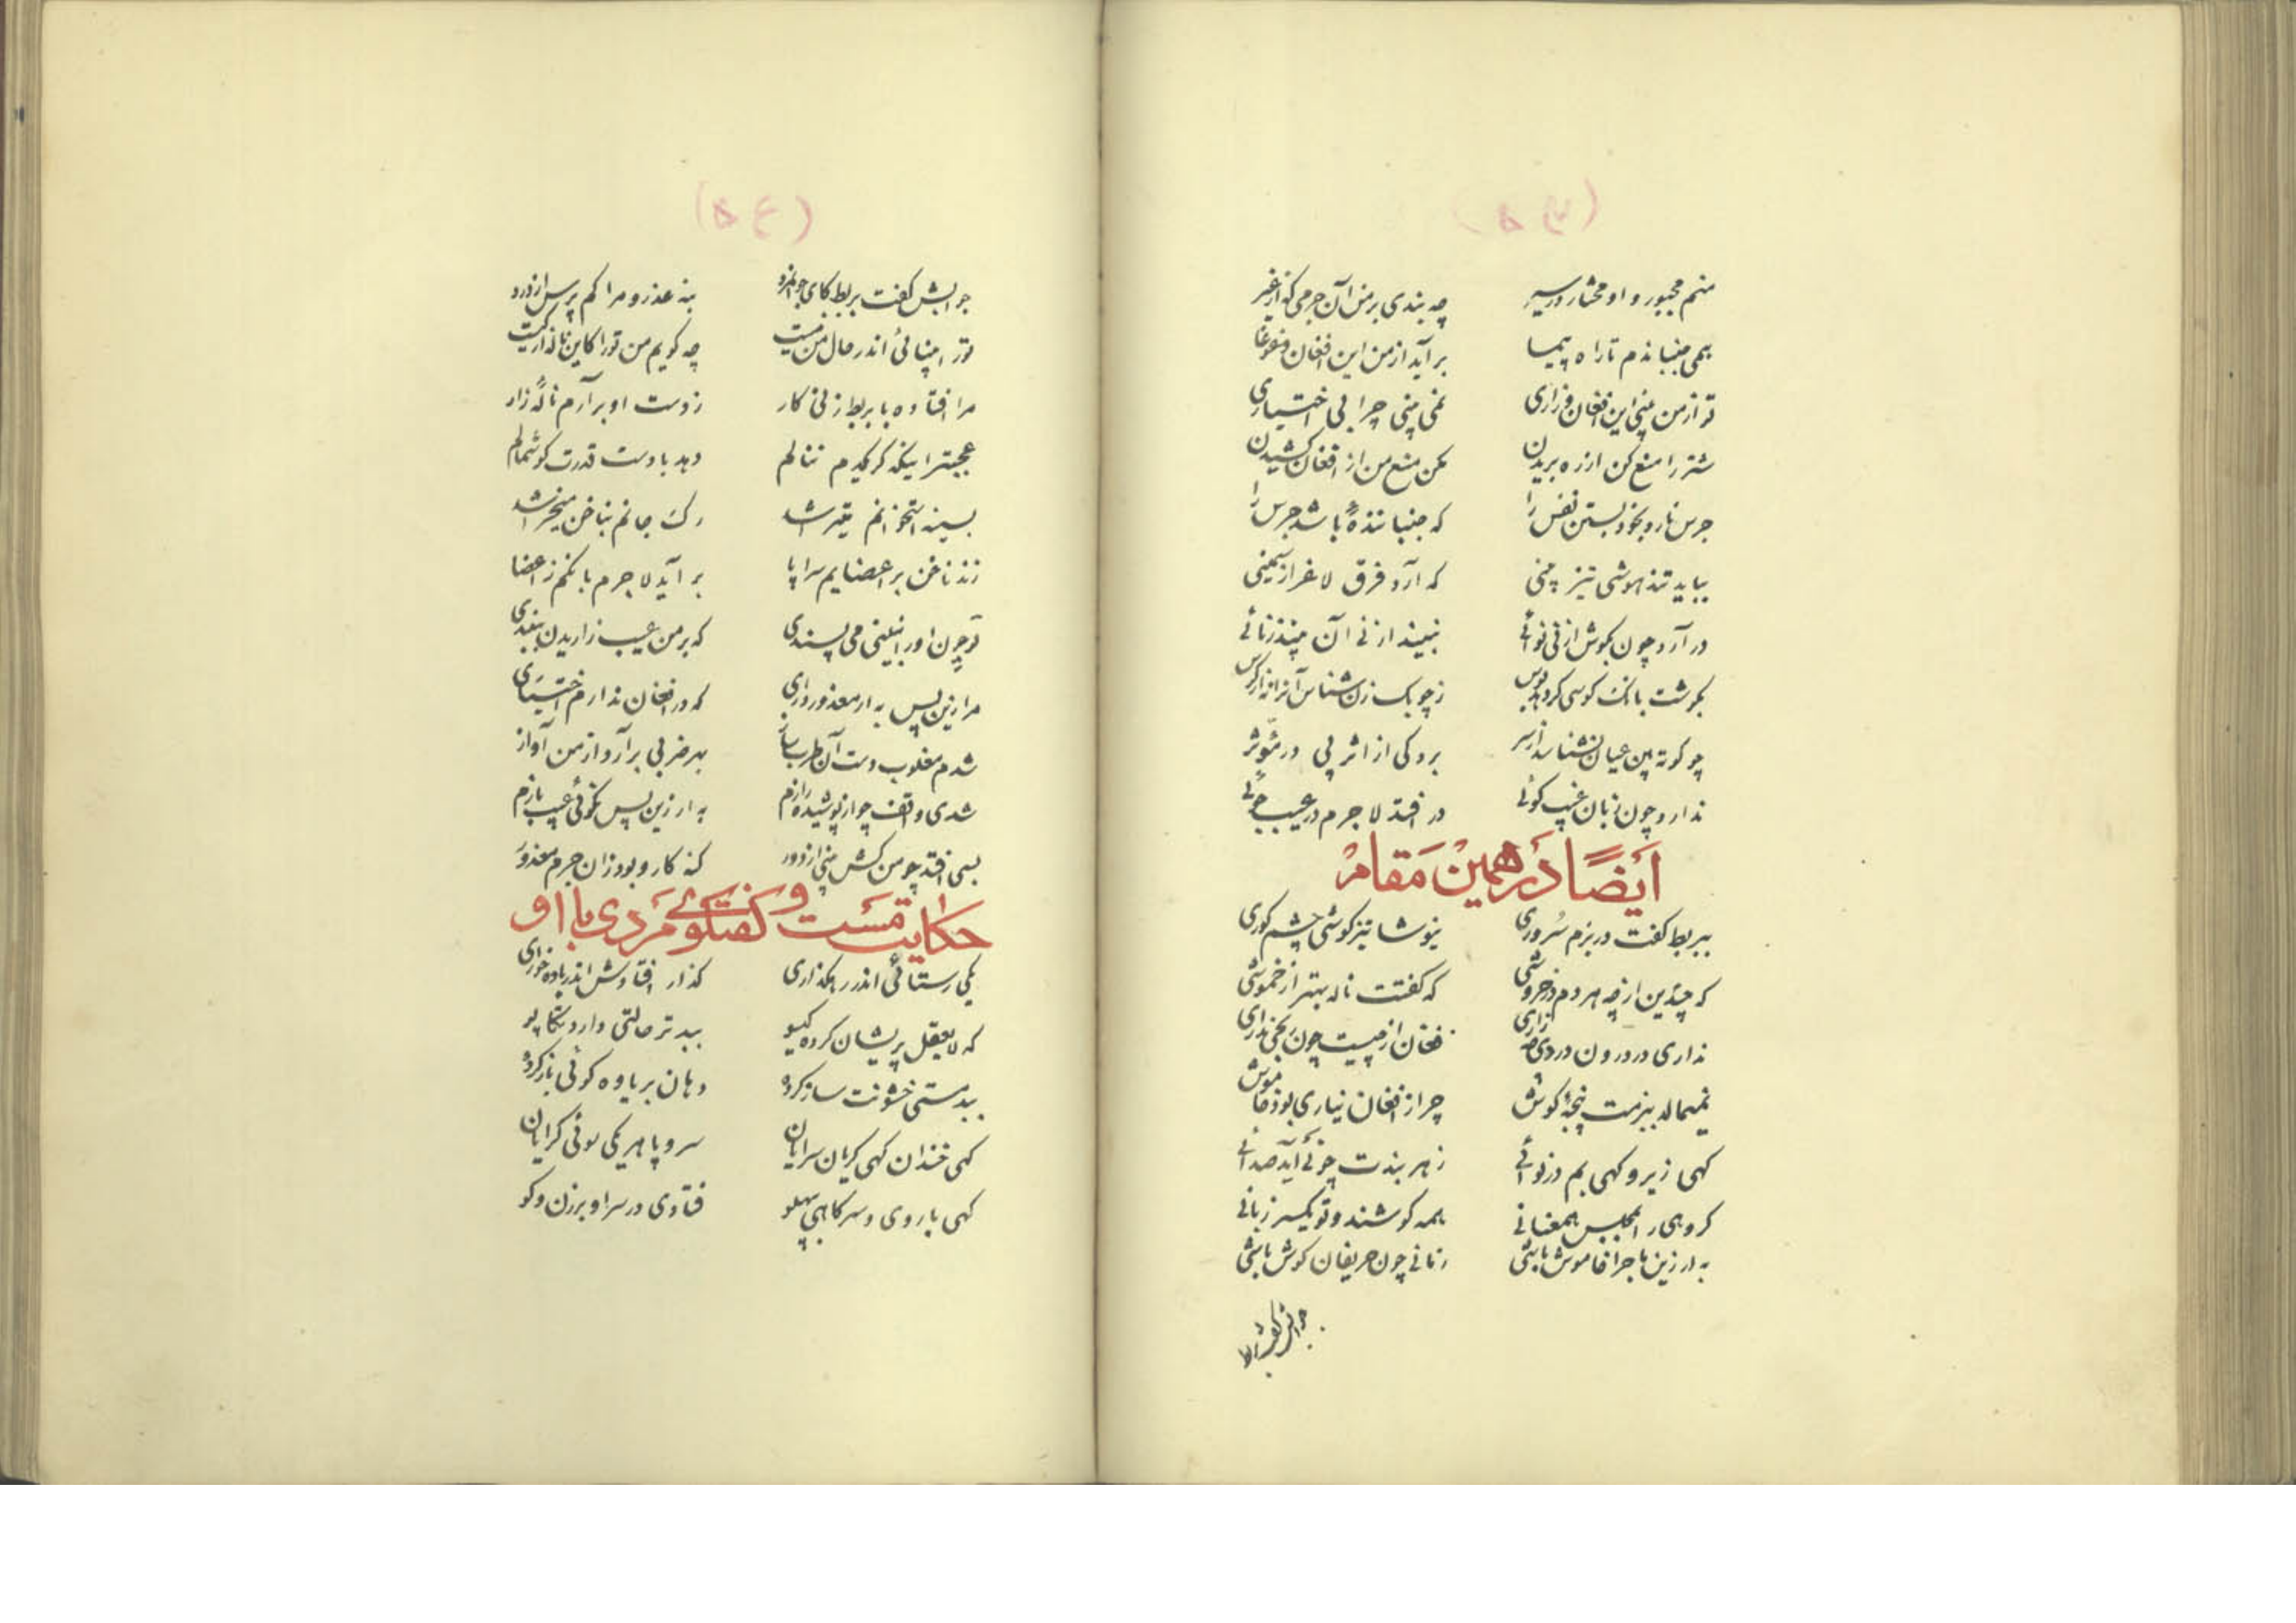 (۵۳)
منم مجبور و او مختار در سیر چه بندی بر من آن جرمی که از غیر
همی جنباندم تا راه پیما بر آید از من این افغان و غوغا
تو از من بینی این افغان و زاری نمی بینی چرا بی اختیاری
شتر را منع کن از ره بریدن مکن منع من از افغان کشیدن
جرس نارد بخود بستن نفس را که جنباننده باشد جرس را
بباید تند هوشی تیز بینی که آرد فرق لاغر از سمینی
در آرد چون بگوش از نی نوائی نبیند از نی آن بیند زنائی
بگوشت بانگ کوسی کرد زچوبک زن شناس آنرا نه از کوس
چو کوته بین عیان نشناسد از سر برد کی از اثر پی در مؤثر
ندارد چون زبان غیب گوئی در افتد لاجرم در عیب جوئی
اَیضًا دَر همین مَقام
ببربط گفت در بزم سُروری نیوشا تیز گوشی چشم کوری
که چندین از چه هر دم در خروشی که گفتت ناله بهتر از خموشی
نداری در درون دردی زاری فغان از چیست چون
نمیمالد ببزمت پنجهٔ گوش چرا از افغان نیاری بود خاموش
گهی زیر و گهی بم در نوائی ز هر بندت چو نی آید صدائی
گروهی را بمجلس همعنانی همه گوشند و تو یکسر زبانی
به ار زین ماجرا خاموش باشی زمانی چون حریفان گوش باشی
جوابش گفت بربط
(۵۴)
جوابش گفت بربط کای جوانمرد بنه عذر و مرا کم پرس از درد
تو را بینائی اندر حال من نیست چه گویم من تو را کاین ناله از کیست
مرا افتاده با بربط زنی کار ز دست او بر آرم نالهٔ زار
عجبتر اینکه گر یکدم ننالم دهد با دست قدرت گوشمالم
بسینه استخوانم میتراشد رگ جانم بناخن میخراشد
زند ناخن بر اعضایم سراپا بر آید لاجرم بانگم ز اعضا
تو چون او را نبینی می پسندی که بر من عیب زاریدن ببندی
مرا زین پس به ار معذور داری که در افغان ندارم اختیاری
شدم مغلوب دست آن طرب ساز بهر ضربی بر آرد از من آواز
شدی واقف چو از پوشیده رازم به ار زین پس نگوئی عیب بازم
بسی افتد چو من کش بینی از دور گنه کار و بود زان جرم معذور
حکایت مَست و گفتگوی مَردی با او
یکی رستائی اندر رهگذاری گذار افتادش اندر باده خواری
که لایعقل پریشان کرده گیسو ببد تر حالتی دارد تکاپو
ببد مستی خشونت ساز کرده دهان بر یاوه گوئی باز کرده
گهی خندان گهی گریان سرایان سر و پا هر یکی سوئی گرایان
گهی با روی و سر گاهی بپهلو فتادی در سرا و برزن و کو